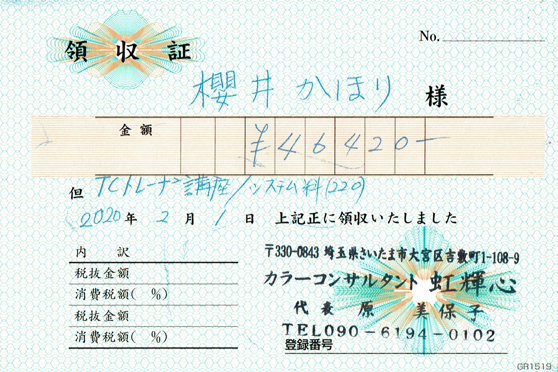 No.
領収証
櫻井かほり 様
金額 ¥46420-
但 TCトレーナー講座/システム料(220)
2020年 2月 1日 上記正に領収いたしました
内訳
税抜金額
消費税額( %)
税抜金額
消費税額( %)
〒330-0843 埼玉県さいたま市大宮区吉敷町1-108-9
カラーコンサルタント 虹輝心
代表 原 美保子
TEL090-6194-0102
登録番号
GR1519